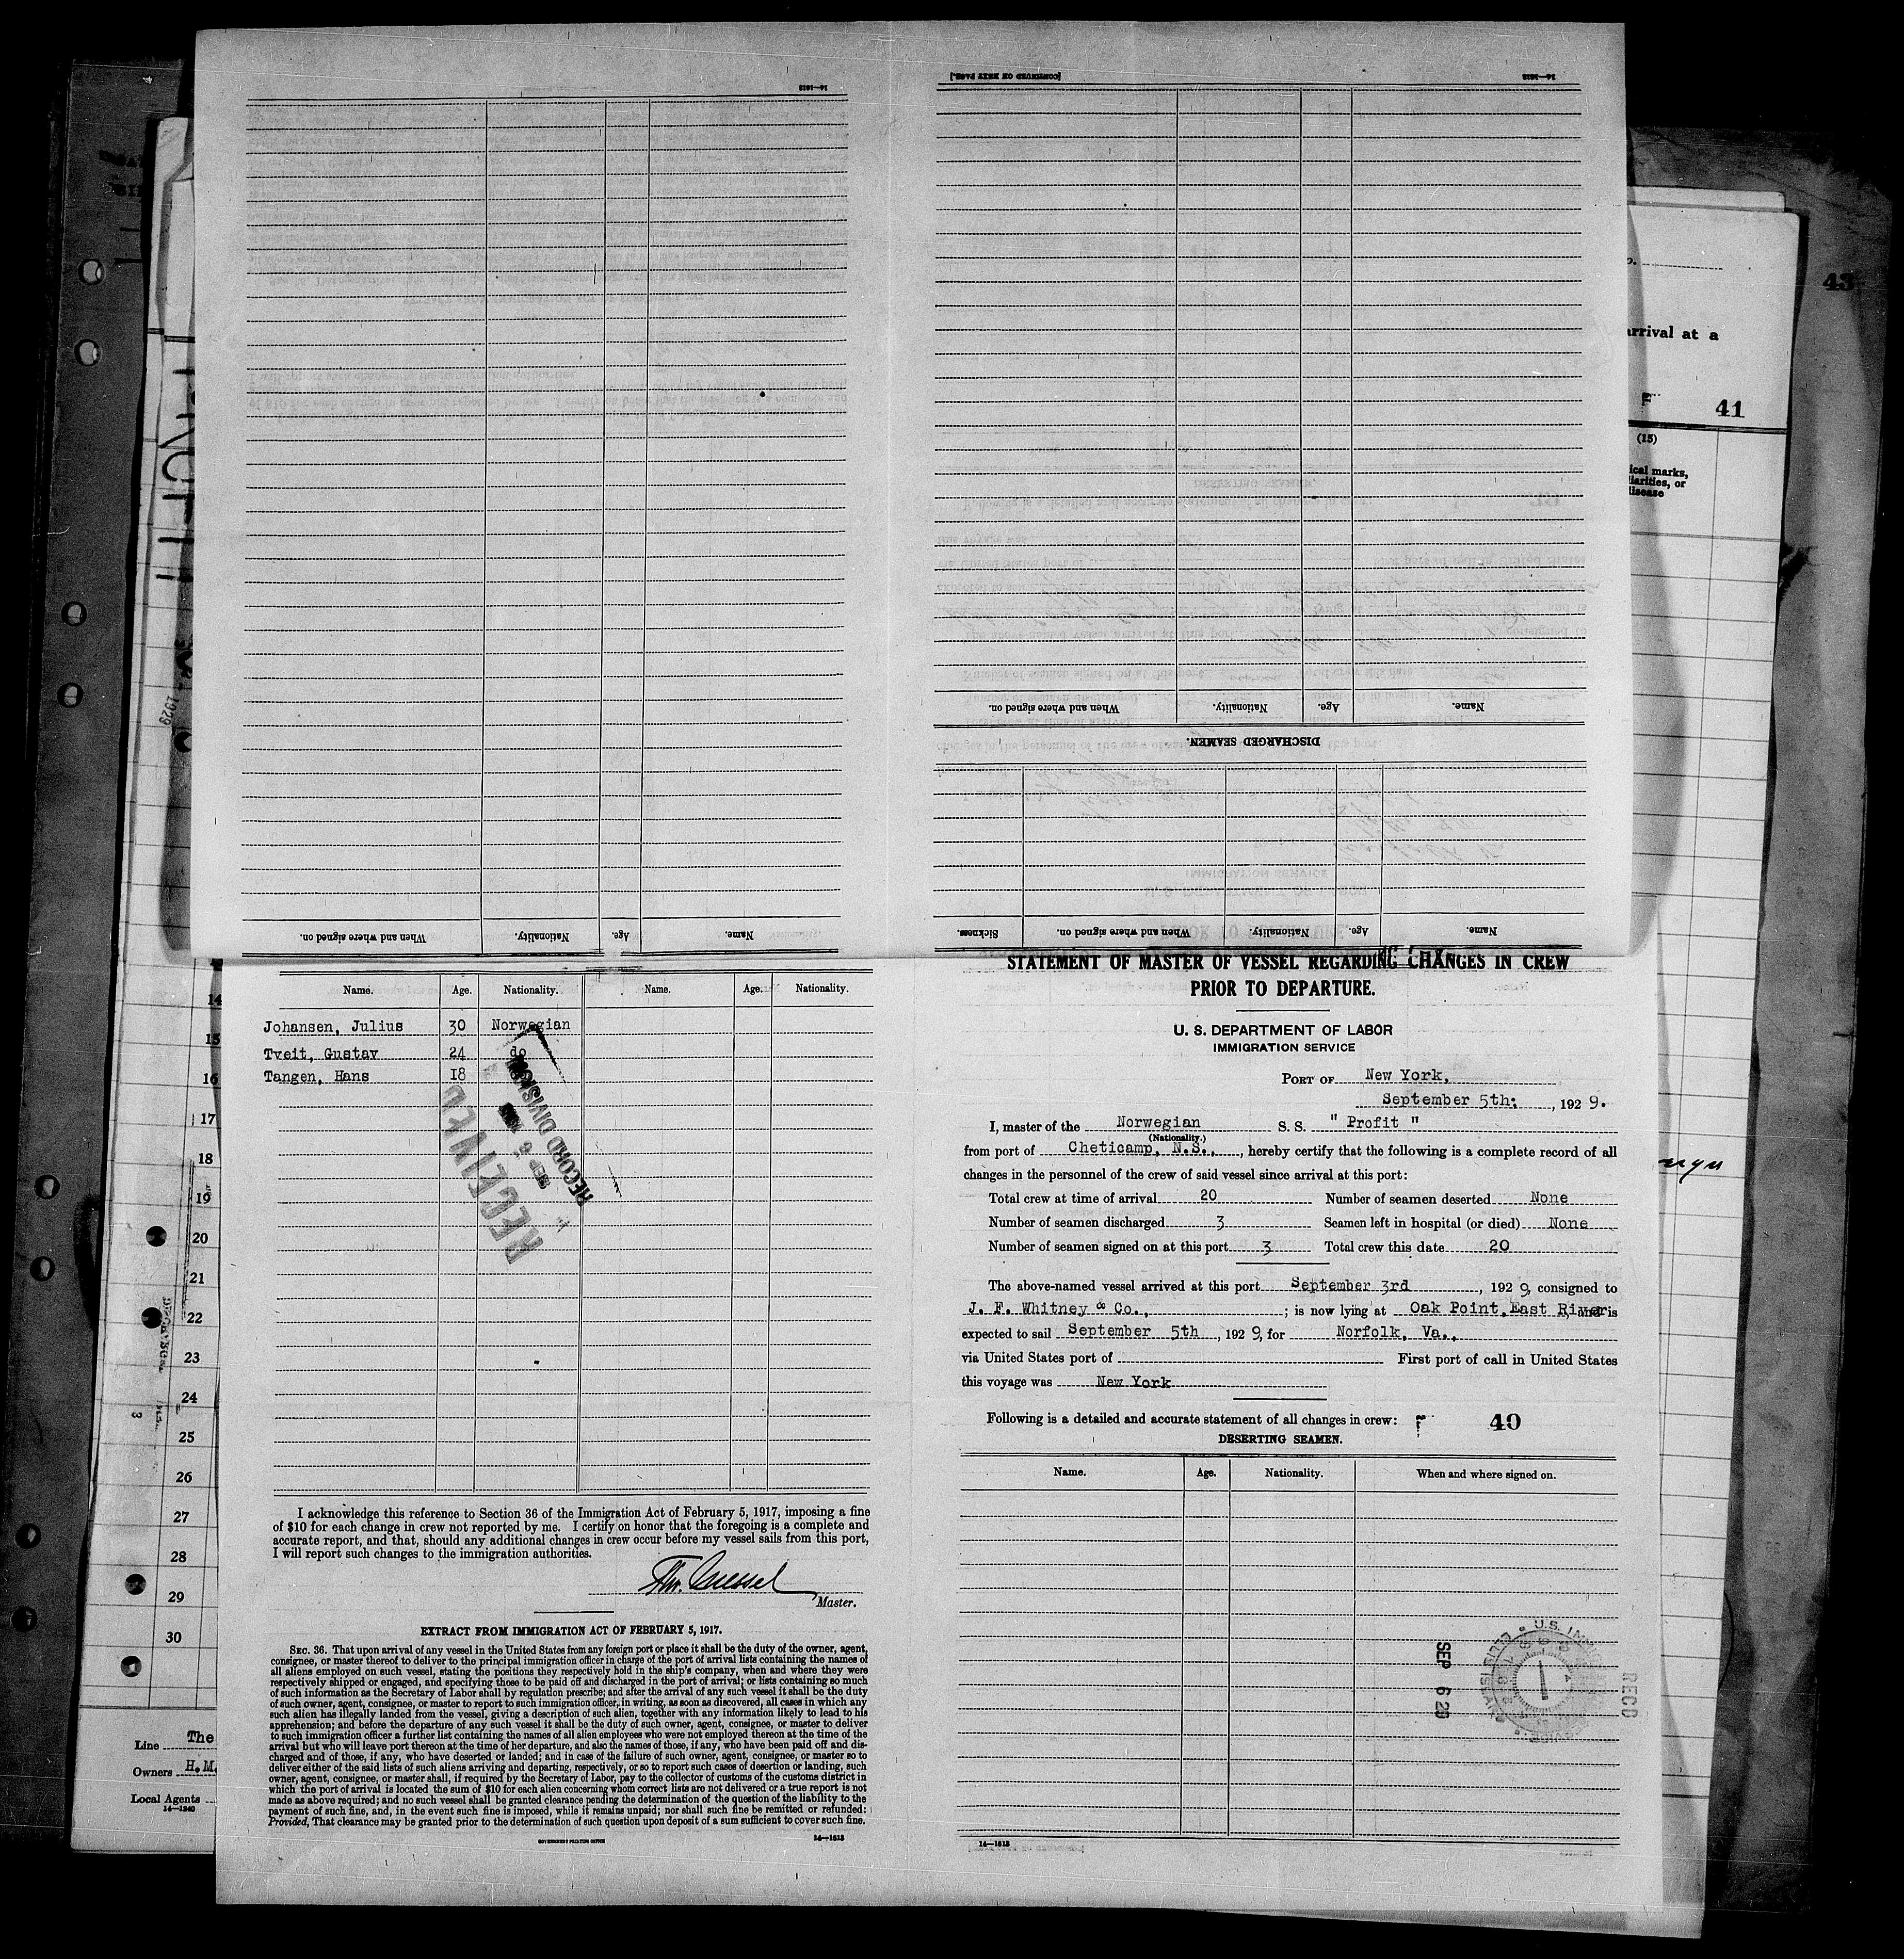 14—1613
[CONTINUED ON NEXT PAGE.]
14—1613
Name.
Age.
Nationality.
When and where signed on.
DISCHARGED SEAMEN.
Name.
Age.
Nationality.
When and where signed on.
Name.
Age.
Nationality.
When and where signed on.
Sickness
43
arrival at a
F 41
(15)
ical marks,
liarities, or
disease
1929
14
15
16
17
18
19
20
21
22
23
24
25
26
27
28
29
30
Line The
Owners H.M.
Local Agents
14—1240
Name. Age. Nationality. Name. Age. Nationality.
Johansen, Julius 30 Norwegian
Tveit, Gustav 24 do
Tangen, Hans 18
RECEIVED
SEP 6
RECORD DIVISION
I acknowledge this reference to Section 36 of the Immigration Act of February 5, 1917, imposing a fine
of $10 for each change in crew not reported by me. I certify on honor that the foregoing is a complete and
accurate report, and that, should any additional changes in crew occur before my vessel sails from this port,
I will report such changes to the immigration authorities.
Master.
EXTRACT FROM IMMIGRATION ACT OF FEBRUARY 5, 1917.
SEC. 36. That upon arrival of any vessel in the United States from any foreign port or place it shall be the duty of the owner, agent,
consignee, or master thereof to deliver to the principal immigration officer in charge of the port of arrival lists containing the names of
all aliens employed on such vessel, stating the positions they respectively hold in the ship's company, when and where they were
respectively shipped or engaged, and specifying those to be paid off and discharged in the port of arrival; or lists containing so much
of such information as the Secretary of Labor shall by regulation prescribe; and after the arrival of any such vessel it shall be the duty
of such owner, agent, consignee, or master to report to such immigration officer, in writing, as soon as discovered, all cases in which any
such alien has illegally landed from the vessel, giving a description of such alien, together with any information likely to lead to his
apprehension; and before the departure of any such vessel it shall be the duty of such owner, agent, consignee, or master to deliver
to such immigration officer a further list containing the names of all alien employees who were not employed thereon at the time of the
arrival but who will leave port thereon at the time of her departure, and also the names of those, if any, who have been paid off and dis-
charged and of those, if any, who have deserted or landed; and in case of the failure of such owner, agent, consignee, or master so to
deliver either of the said lists of such aliens arriving and departing, respectively, or so to report such cases of desertion or landing, such
owner, agent, consignee, or master shall, if required by the Secretary of Labor, pay to the collector of customs of the customs district in
which the port of arrival is located the sum of $10 for each alien concerning whom correct lists are not delivered or a true report is not
made as above required; and no such vessel shall be granted clearance pending the determination of the question of the liability to the
payment of such fine, and, in the event such fine is imposed, while it remains unpaid; nor shall such fine be remitted or refunded:
Provided, That clearance may be granted prior to the determination of such question upon deposit of a sum sufficient to cover such fine.
GOVERNMENT PRINTING OFFICE
14—1613
STATEMENT OF MASTER OF VESSEL REGARDING CHANGES IN CREW
PRIOR TO DEPARTURE.
U. S. DEPARTMENT OF LABOR
IMMIGRATION SERVICE
PORT OF New York,
September 5th: , 1929.
I, master of the Norwegian S. S. " Profit "
(Nationality.)
from port of Cheticamp, N.S., , hereby certify that the following is a complete record of all
changes in the personnel of the crew of said vessel since arrival at this port:
Total crew at time of arrival 20 Number of seamen deserted None
Number of seamen discharged 3 Seamen left in hospital (or died) None
Number of seamen signed on at this port 3 Total crew this date 20
The above-named vessel arrived at this port September 3rd , 1929, consigned to
J. F. Whitney & Co., ; is now lying at Oak Point, East River and is
expected to sail September 5th , 1929, for Norfolk, Va.,
via United States port of First port of call in United States
this voyage was New York
Following is a detailed and accurate statement of all changes in crew: F 40
DESERTING SEAMEN.
Name. Age. Nationality. When and where signed on.
SEP 6 29
REC'D
14—1613